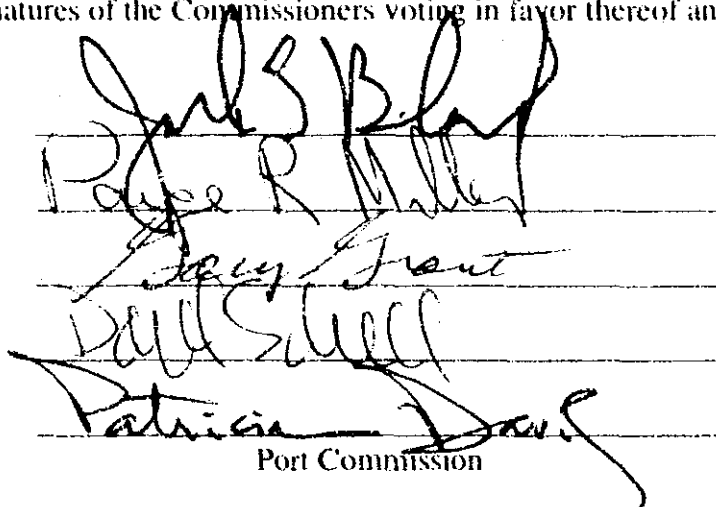 natures of the Commissioners voting in favor thereof an
Jack S Block
Paige R Miller
Gary Grant
Patricia Davis
Port Commission